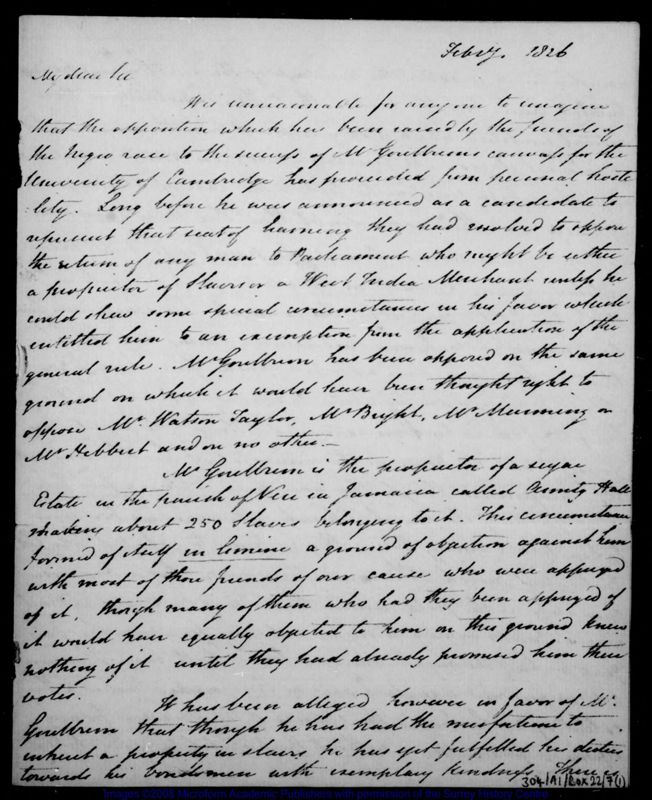 Febry. 1826
My dear Sir
It is unreasonable for any one to imagine
that the opposition which has been raised by the friends of
the Negro race to the success of Mr Goulburns canvass for the
University of Cambridge has proceeded from personal hosti-
:lity. Long before he was announced as a candidate to
represent that seat of learning they had resolved to oppose
the return of any man to Parliament who might be either
a proprietor of Slaves or a West India Merchant unless he
could shew some special circumstances in his favor which
entitled him to an exemption from the application of the
general rule. Mr Goulburn has been opposed on the same
ground on which it would have been thought right to
oppose Mr Watson Taylor, Mr Bright, Mr Manning or
Mr Hibbert and on no other_
Mr Goulburn is the proprietor of a sugar
Estate in the parish of Vere in Jamaica called Amity Hall
making about 250 Slaves belonging to it. This circumstance
formed of itself in limine a ground of objection against him
with most of those friends of our cause who were apprized
of it, though many of them who had they been apprized of
it would have equally objected to him on this ground knew
nothing of it until they had already promised him their
votes.
It has been alleged however in favor of Mr
Goulburn that though he has had the misfortune to
inherit a property in slaves he has yet fulfilled his duties
towards his bondsmen with exemplary kindness. There is
304/A1/Box 22/7(1)
Images ©2008 Microform Academic Publishers with permission of the Surrey History Centre